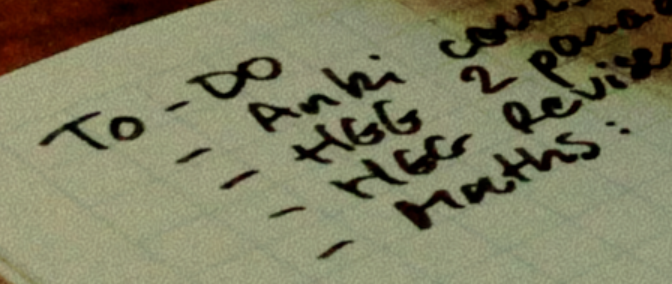 To-Do
- Anki
- HGG 2
- HGG Revise
- Maths: